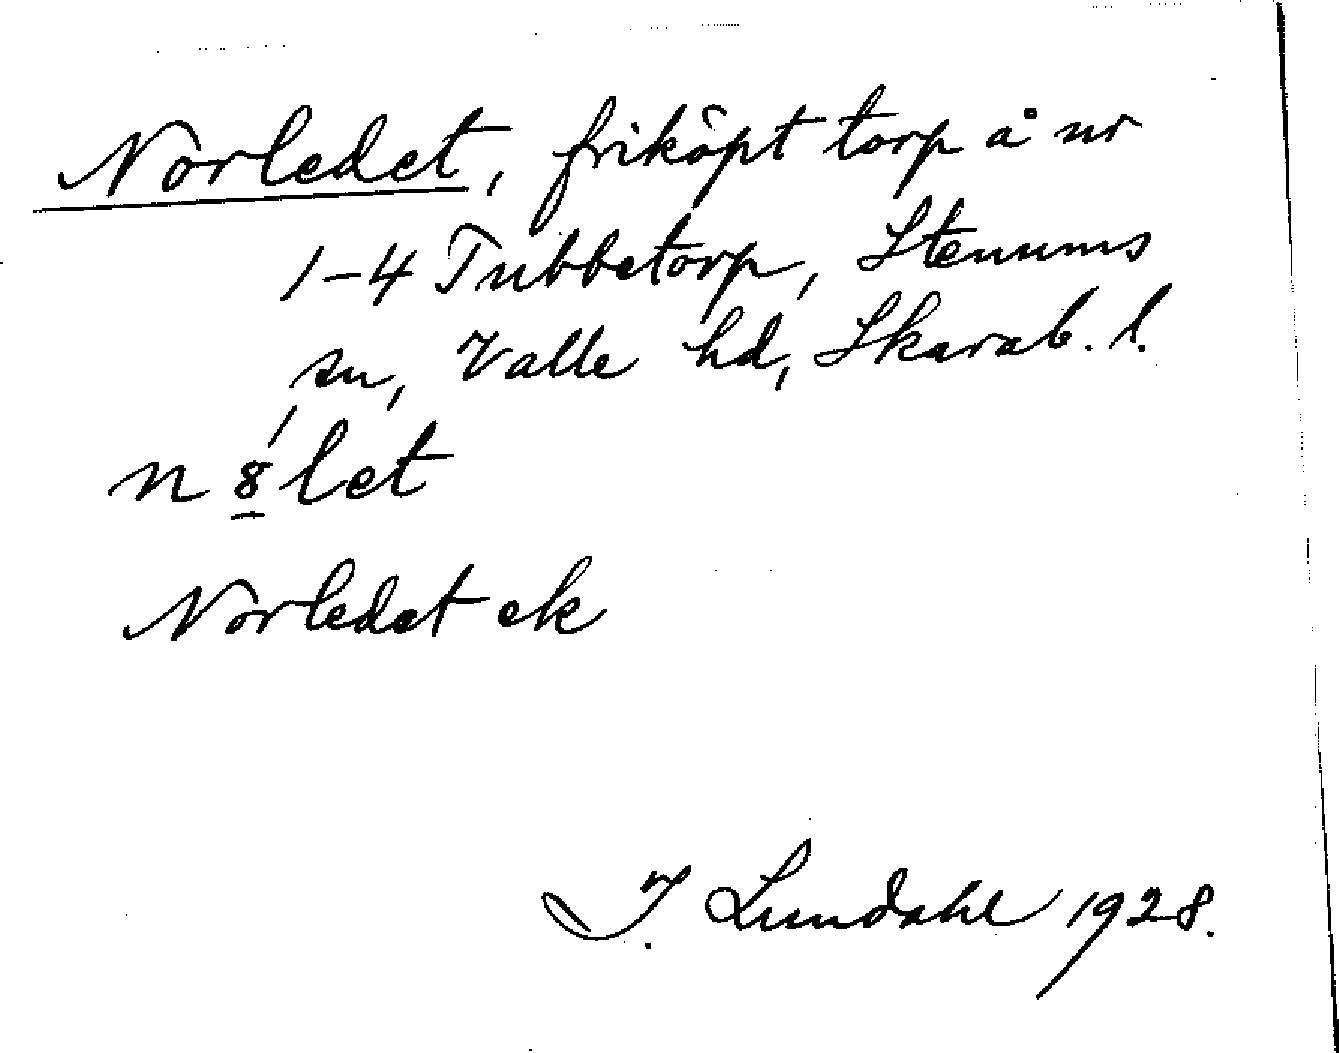 Norledet, friköpt torp å nr
1-4 Tubbetorp, Stenums
sn, Valle hd, Skarab. l.
n 8̱́ let
Norledet ek
I. Lundahl 1928.